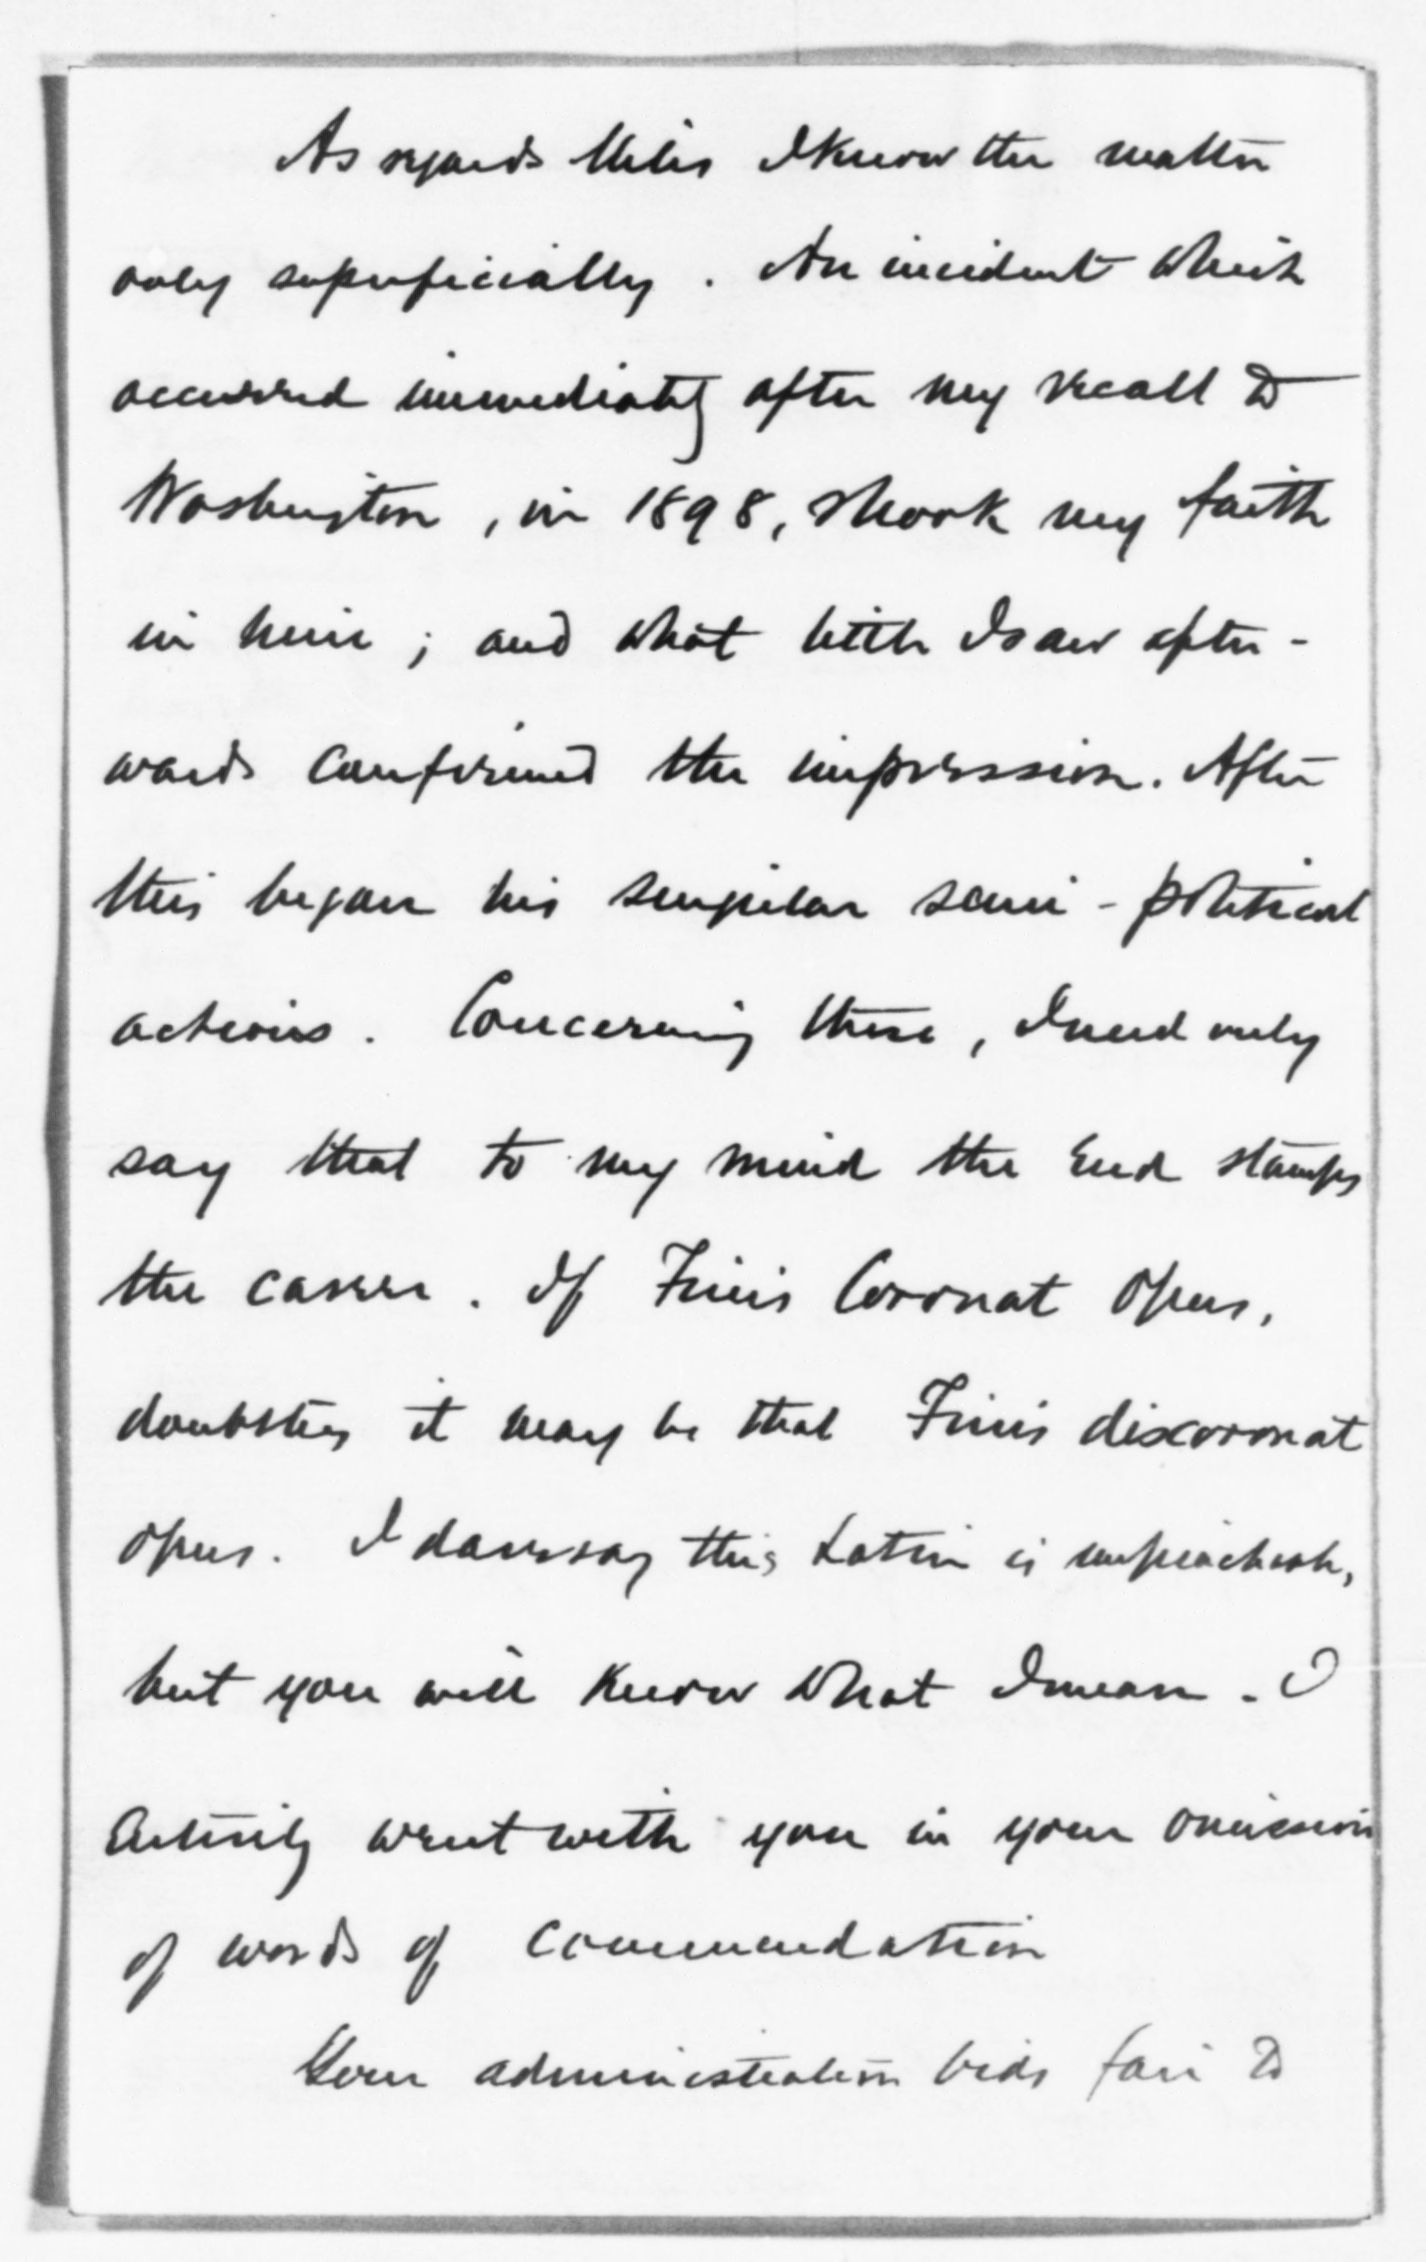 As regards Miles I know the matter
only superficially. An incident which
occurred immediately after my recall to
Washington, in 1898, shook my faith
in him; and what little I saw after-
wards confirmed the impression. After
this began his singular semi-political
actions. Concerning these, I need only
say that to my mind the end stamps
the career. If Finis Coronat opus,
doubtless it may be that Finis discoronat
opus. I daresay this Latin is impeachable,
but you will know what I mean. I
Entirely went with you in your omission
of words of commendation
Your administration bids fair to